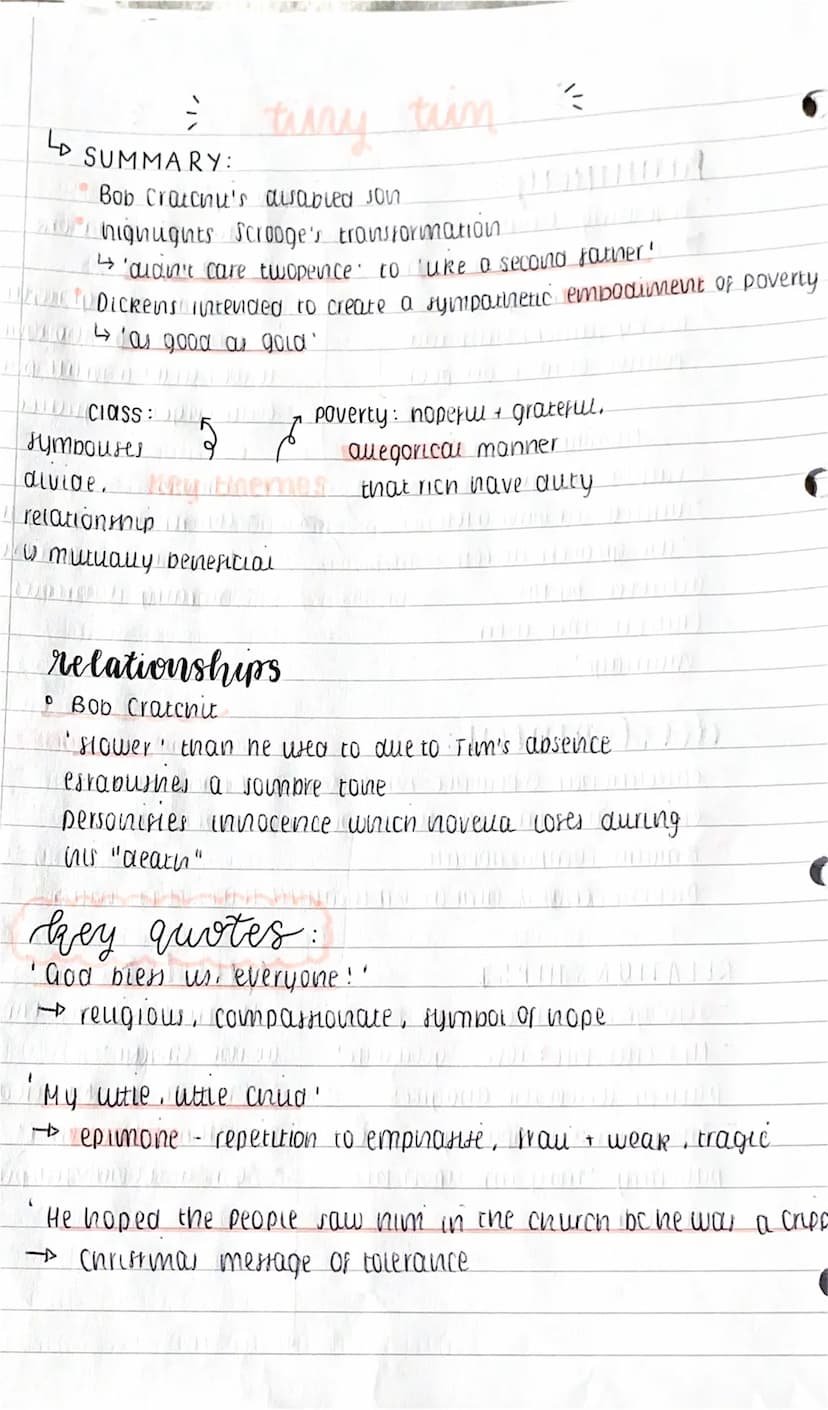 tiny tim
↳ SUMMARY:
• Bob Cratchit's disabled son
• highlights Scrooge's transformation
↳ 'didn't care twopence' to 'like a second father'
• Dickens intended to create a sympathetic embodiment of poverty
↳ 'as good as gold'
class:
symbolises
divide.
relationship
is mutually beneficial
poverty: hopeful + grateful.
allegorical manner
that rich have duty
key themes
relationships
• Bob Cratchit
'slower' than he used to due to Tim's absence
establishes a sombre tone
personifies innocence which novella loses during
his "death"
key quotes:
'God bless us, everyone!'
→ religious, compassionate, symbol of hope
'My little, little child'
→ epimone - repetition to emphasise, frail + weak, tragic
'He hoped the people saw him in the church bc he was a
→ Christmas message of tolerance